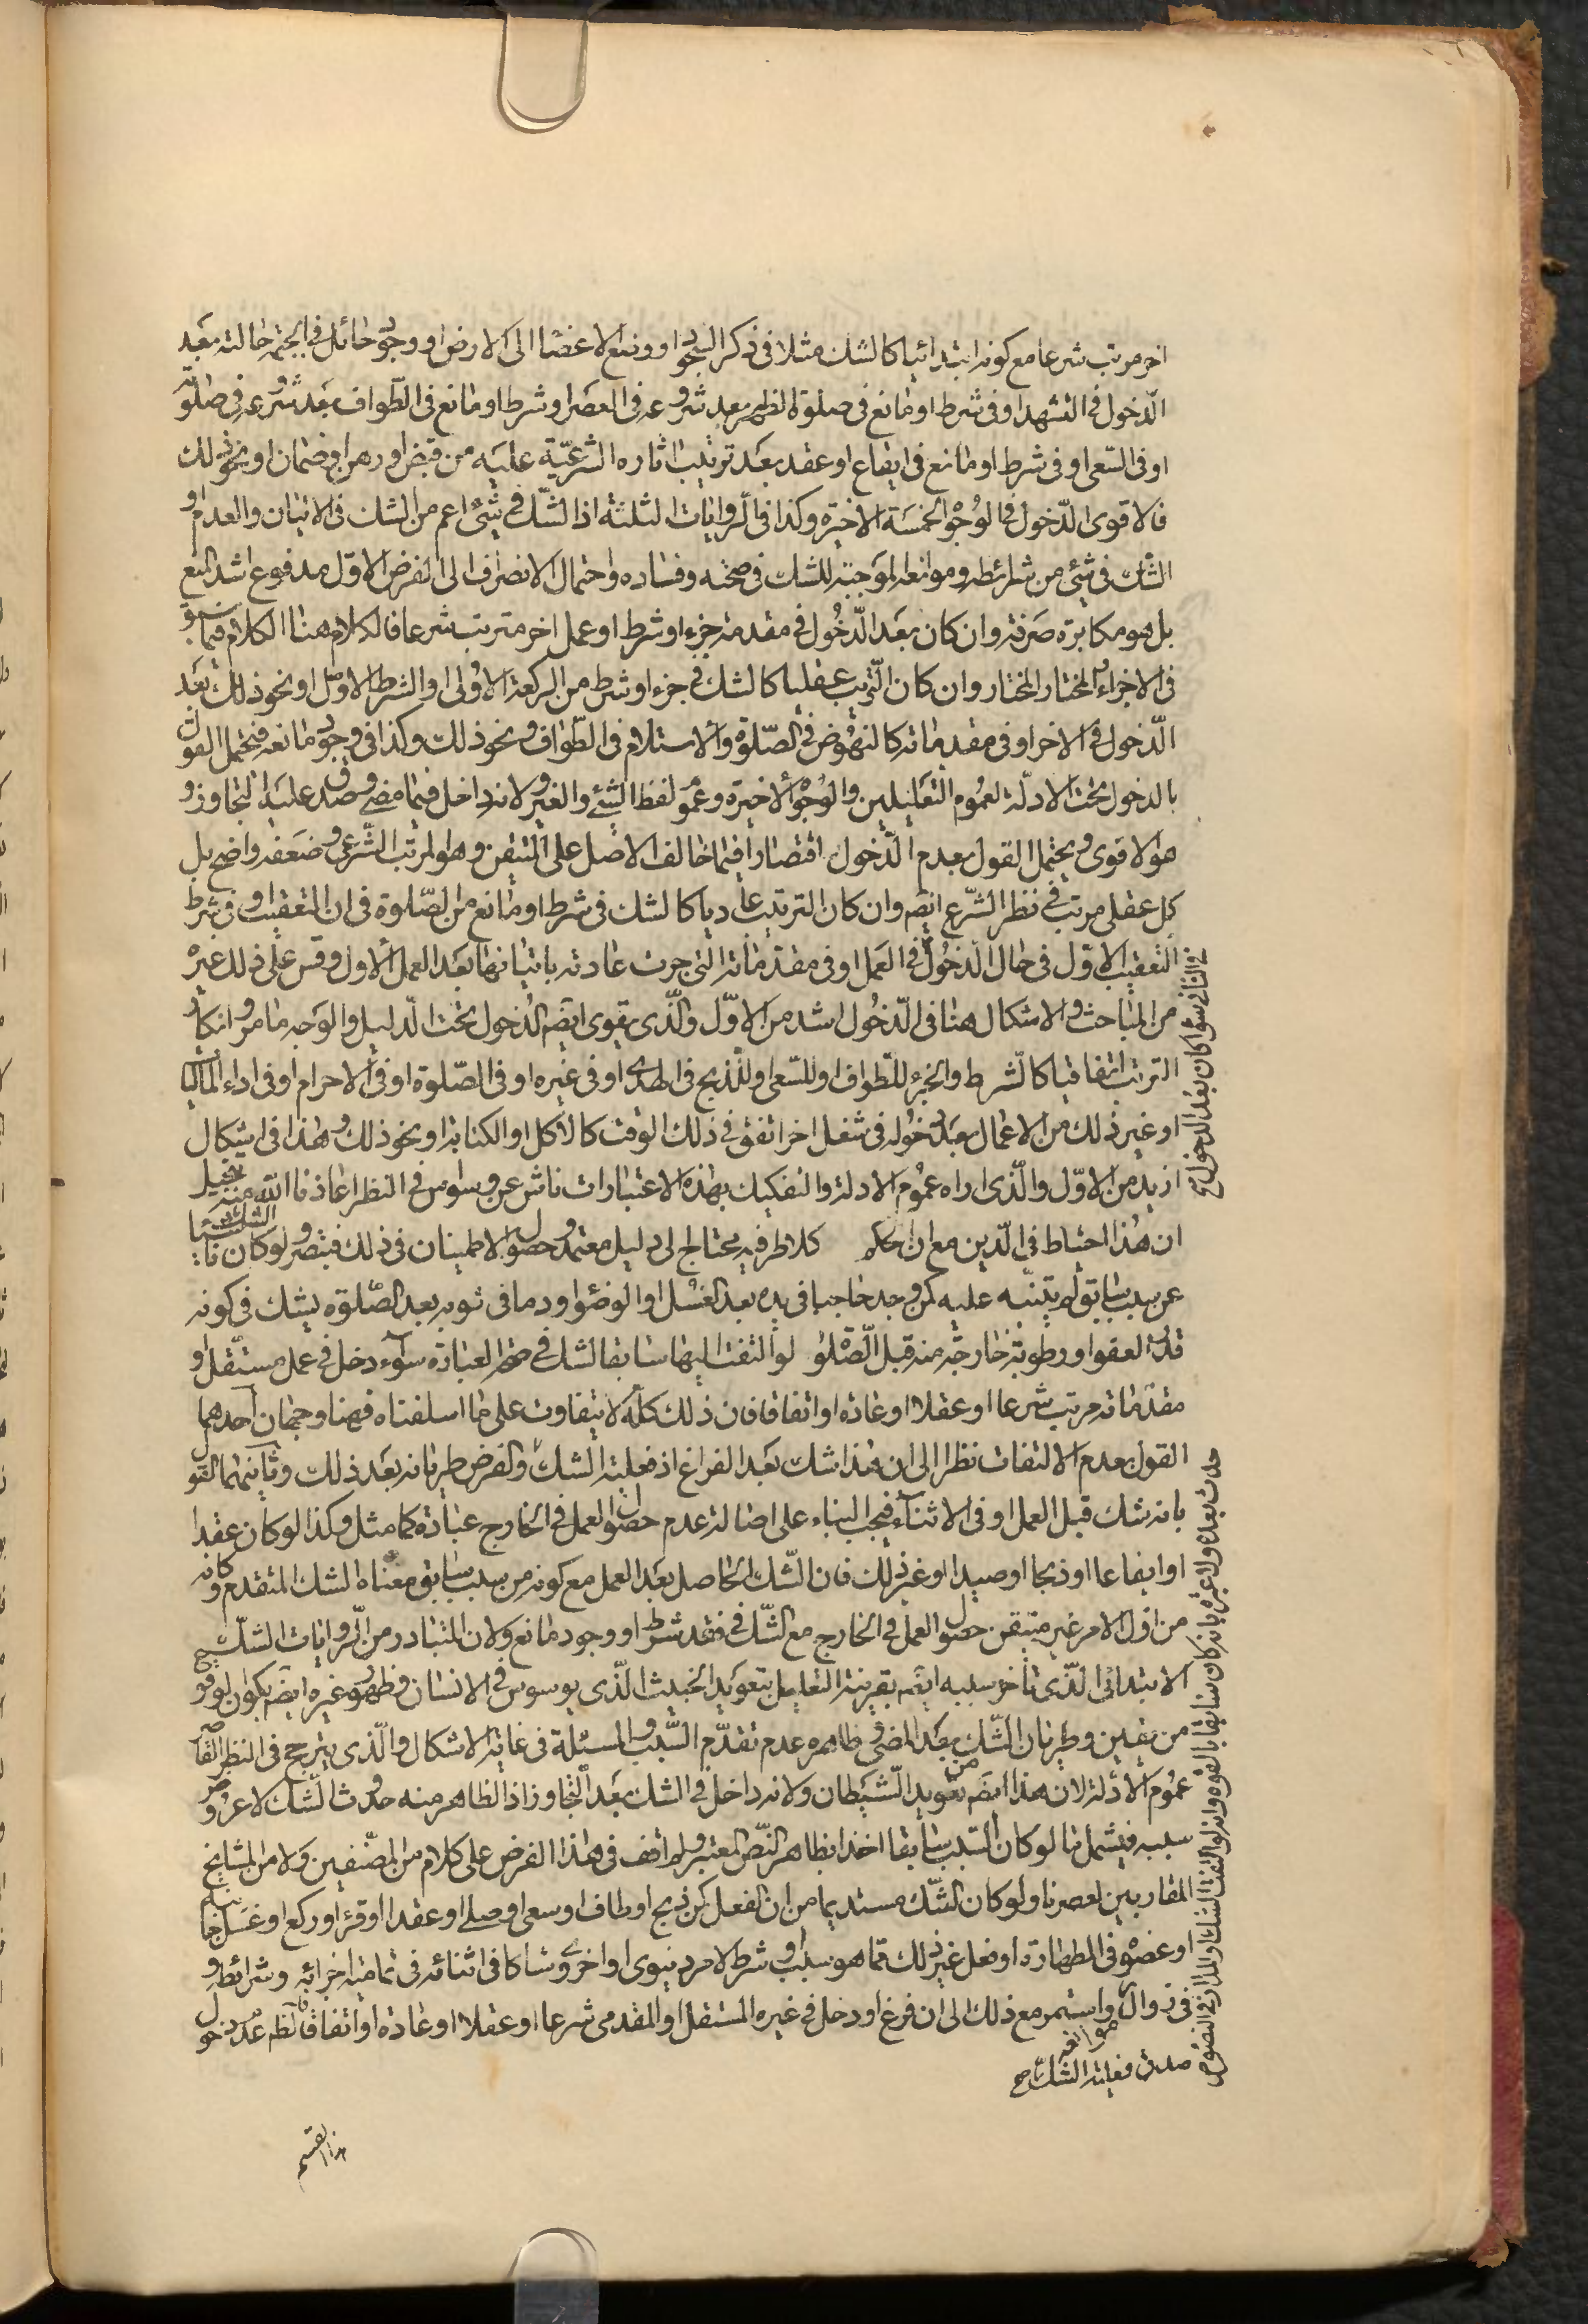 اخر مرتب شرعا مع كونه ابتدائيا كالشك مثلا فى ذكر السجود او وضع الاعضاء الى الارض او وجود حائل فى الجبهة حالته بعد
الدخول فى التشهد او فى شرط او مانع فى صلوة الظهر بعد شروعه فى العصر او شرط او مانع فى الطواف بعد شروعه فى صلوته
او فى السعى او فى شرط او مانع فى ايقاع او عقد بعد ترتيب اثاره الشرعية عليه من قبض او رهن او ضمان او نحو ذلك
فالاقوى الدخول فى الوجوه الخمسة الاخيرة وكذا فى الروايات الثلثة اذ الشك فى شئ اعم من الشك فى الاتيان والعدم او
الشك فى شئ من شرائطه وموانعه الموجبة للشك فى صحته وفساده واحتمال الانصراف الى الفرض الاول مدفوع اشد المنع
بل هو مكابرة صرفة وان كان بعد الدخول فى مقدمة جزء او شرط او عمل اخر مترتب شرعا فالكلام هنا الكلام فيما سبق
فى الاجزاء والمختار المختار وان كان الترتيب عقليا كالشك فى جزء او شرط من الركعة الاولى او الشرط الاول او نحو ذلك بعد
الدخول فى الاخر او فى مقدماته كالنهوض فى الصلوة والاستلام فى الطواف ونحو ذلك وكذا فى وجود مانعه فيحتمل القول
بالدخول تحت الادلة لعموم التعليلين والوجوه الاخيرة وعموم لفظ الشئ والغير ولانه داخل فيما مضى وصدق عليه التجاوز و
هو الاقوى ويحتمل القول بعدم الدخول اقتصارا فيما خالف الاصل على المتيقن وهو المرتب الشرعى وضعفه واضح بل
كل عقلى مرتب فى نظر الشرع ايضم وان كان الترتيب عاديا كالشك فى شرط او مانع من الصلوة فى ان التعقيب او فى شرط
التعقيب الاول فى حال الدخول فى العمل او فى مقدماته التى جرت عادته باتيانها بعد العمل الاول وقس على ذلك غيره
من المباحث والاشكال هنا فى الدخول اشد من الاول والذى يقوى ايضم الدخول تحت الدليل والوجه ما مر وان كان
الترتب اتفاقيا كالشرط والجزء للطواف او للسعى او للذبح فى الهدى او فى غيره او فى الصلوة او فى الاحرام او فى اداء الماليات
او غير ذلك من الاعمال بعد دخوله فى شغل اخر اتفق فى ذلك الوقت كالاكل او الكتابة او نحو ذلك وهذا فى اشكال
ازيد من الاول والذى اراه عموم الادلة والتفكيك بهذه الاعتبارات ناش عن وسواس فى النظر اعاذنا الله منه يخيل
ان هذا احتياط فى الدين مع ان حكم كلا طرفيه يحتاج الى دليل معتمد وحصول الاطمينان فى ذلك فتبصر ولو كان الشك ناشئا
عن سبب سابق لم يتنبه عليه كمن وجد حاجبا فى يده بعد الغسل او الوضوء او دما فى ثوبه بعد الصلوة يشك فى كونه
قدر العفو او رطوبة خارجة منه قبل الصلوة لو التفت اليها سابقا لشك فى صحة العبادة سواء دخل فى عمل مستقل او
مقدماته مرتب شرعا او عقلا او عادة او اتفاقا فان ذلك كله لا يتفاوت على ما اسلفناه فهنا وجهان احدهما
القول بعدم الالتفات نظرا الى ان هذا شك بعد الفراغ اذ فعلية الشك والفرض طريانه بعد ذلك وثانيهما القول
بانه شك قبل العمل او فى الاثناء فيجب البناء على اصالة عدم حصول العمل فى الخارج عبادة كما مثل وكذا لو كان عقدا
او ايقاعا او ذبحا او صيدا او غير ذلك فان الشك الحاصل بعد العمل مع كونه من سبب سابق معناه الشك المتقدم وكانه
من اول الامر غير متيقن حصول العمل فى الخارج مع الشك فى فقد شرط او وجود مانع ولان المتبادر من الروايات الشك
الابتدائى الذى تأخر سببه ايضم بقرينة التعليل بتعويد الخبيث الذى يوسوس فى الانسان وظهور غيره ايضم بكون الوقوع
من يقين وطريان الشك بعد المضى وظاهره عدم تقدم السبب والمسئلة فى غاية الاشكال والذى يترجح فى النظر القاصر
عموم الادلة لان هذا ايضم من تعويد الشيطان ولانه داخل فى الشك بعد التجاوز اذ الظاهر منه حدوث الشك لا عروض
سببه فيشمل ما لو كان السبب سابقا اخذا بظاهر النص المعتبر ولم اقف فى هذا الفرض على كلام من المصنفين ولا من المشايخ
المقاربين لعصرنا ولو كان الشك مستديما من ان الفعل كمن ذبح او طاف او سعى او صلى او عقد او قرء او ركع او غسل جانبه
او عضوه فى الطهارة او فعل غير ذلك مما هو سبب او شرط لامر دنيوى او اخروى شاكا فى اثنائه فى تمامية اجزائه وشرائطه و
فى زوال موانعه واستمر مع ذلك الى ان فرغ او دخل فى غيره المستقل او المقدمى شرعا او عقلا او عادة او اتفاقا فالظم عدم دخول
هذا القسم
فى الثانى سواء كان بعد الدخول فى
حدث بعده ولا عبرة بانه كان سابقا بالقوة وانه لو التفت لشك والمدار فى النصوص
صدق فعلية الشك صح